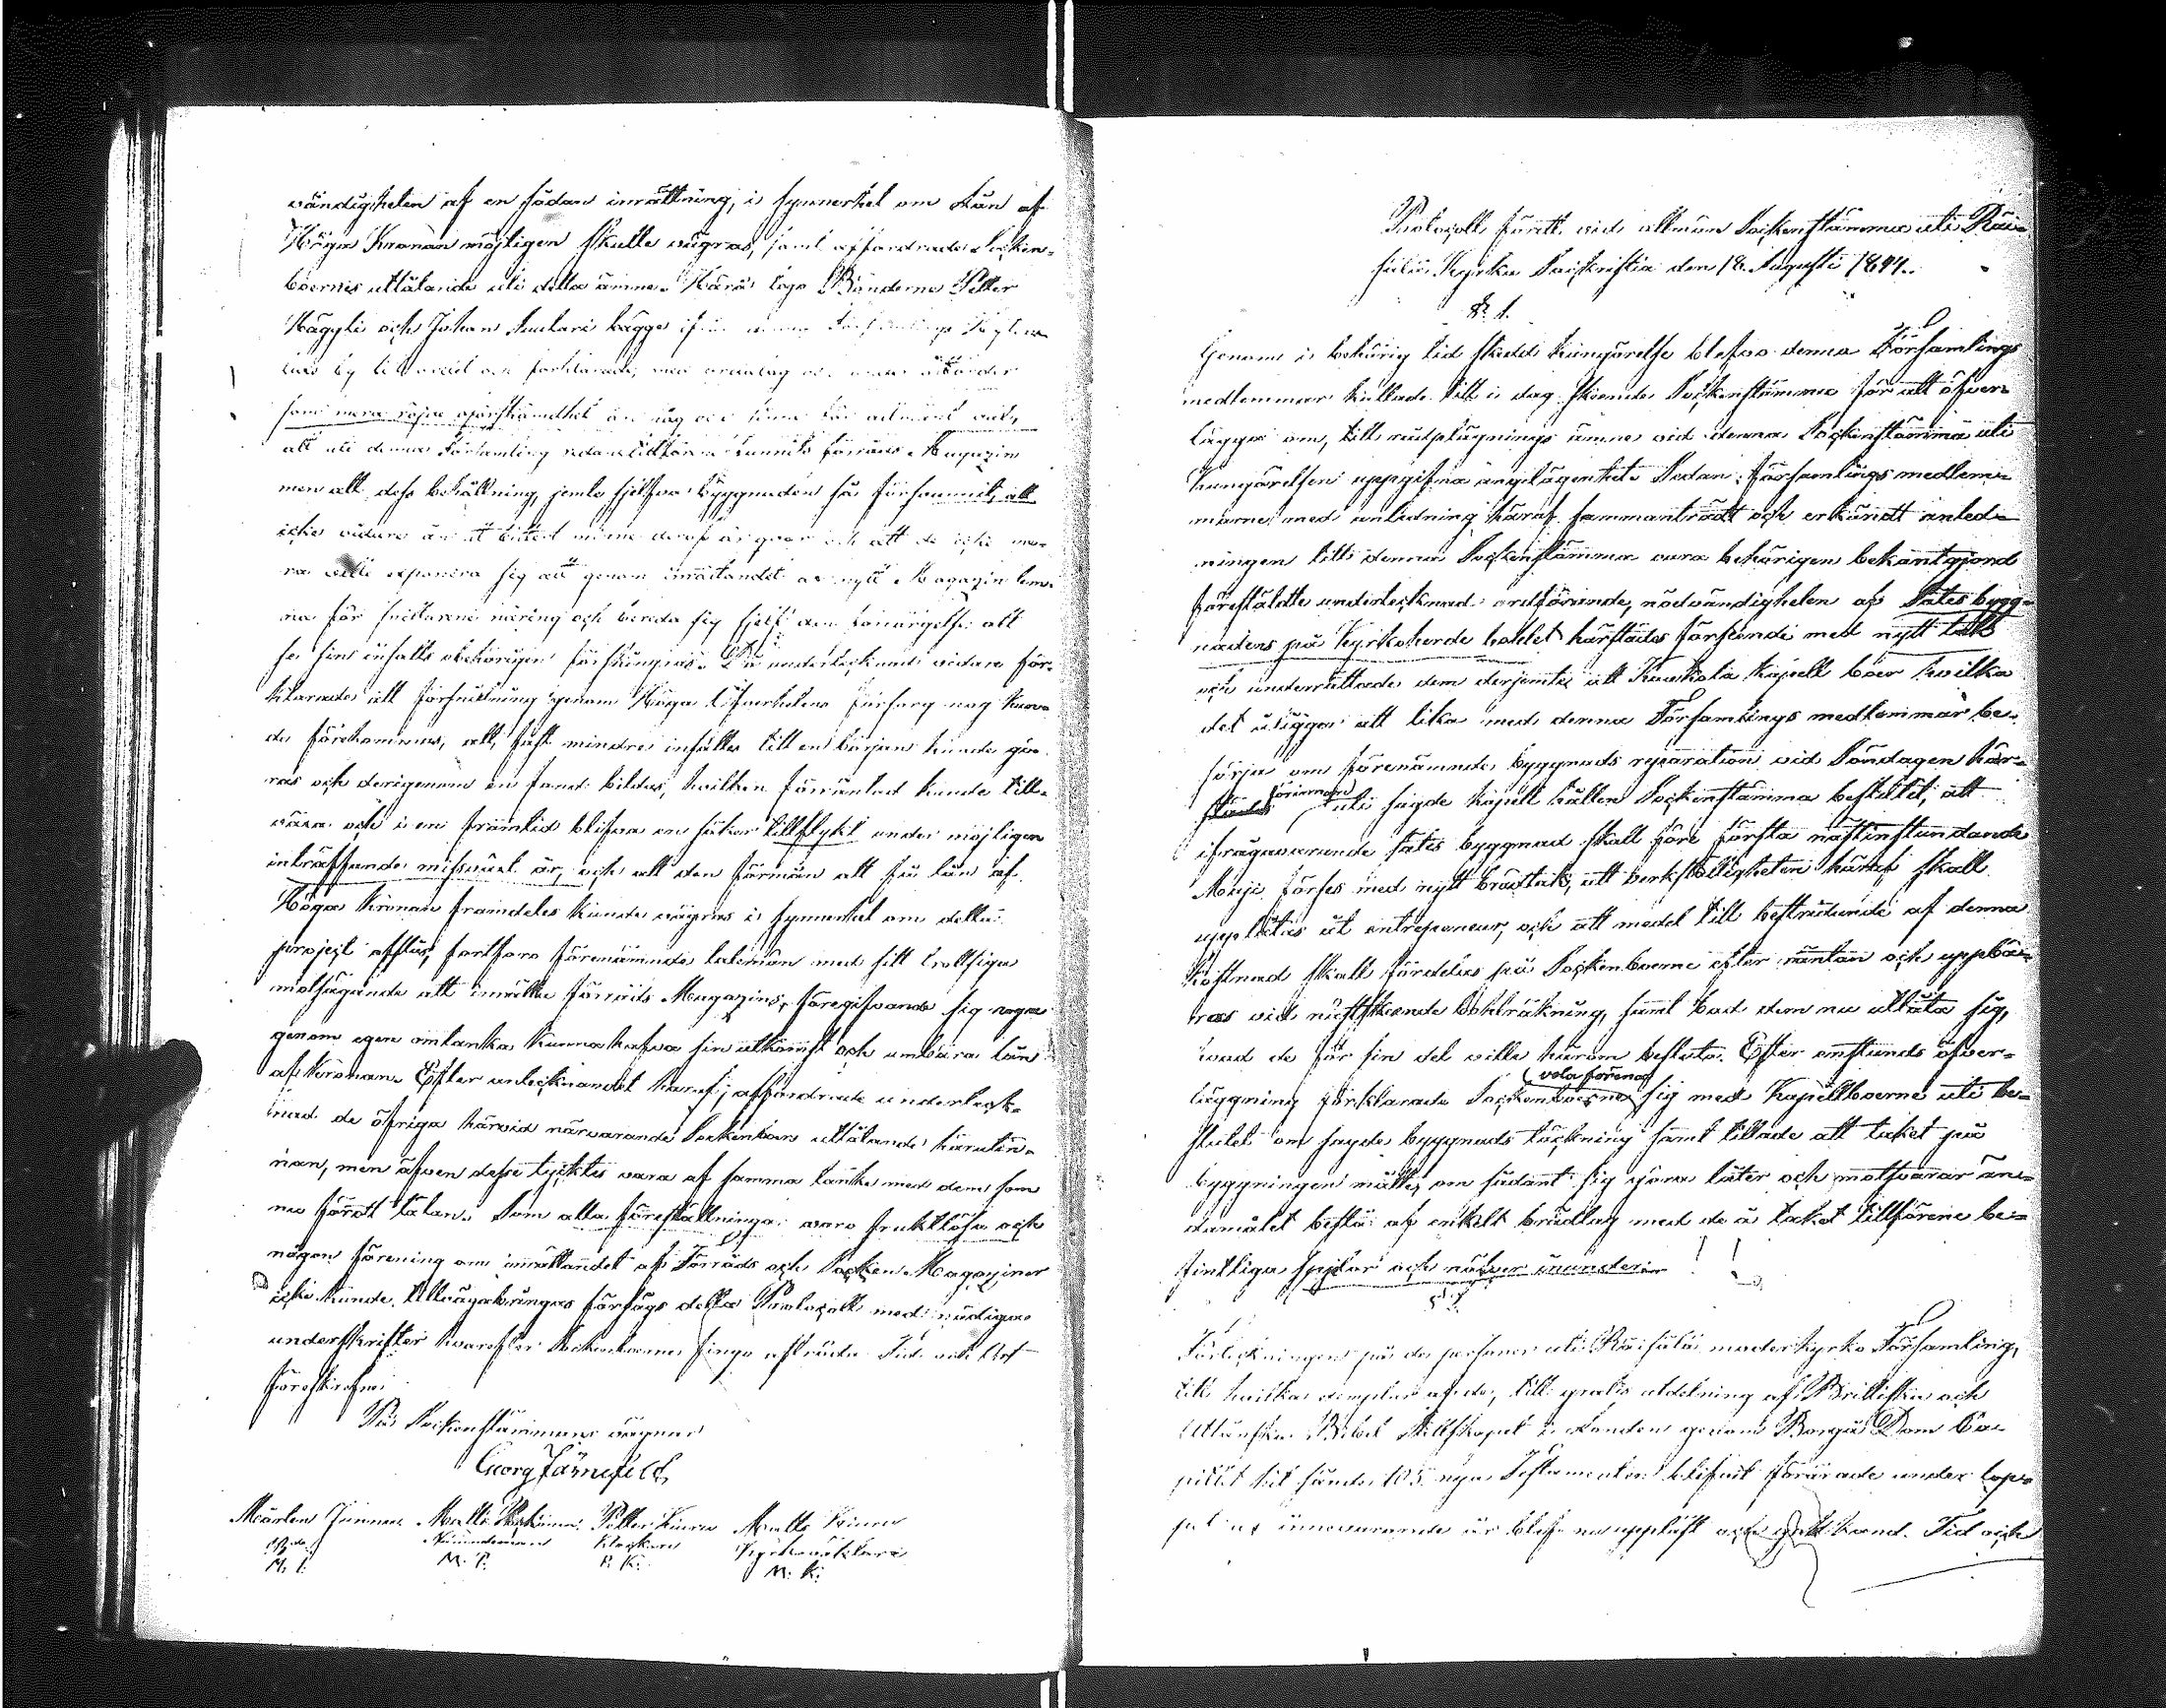 vändigheten af en sådan inrättning, i synnerhet om Lån af
Höga Kronan möjligen skulle vägras, samt affordrade Socken-
boernes utlåtande uti detta ämne. Härå togo Bönderne Petter
Hägyli och Johan Suulari bägge ifrån denna Församlings
by till ord och förklarade, med
som mera röjde
att uti denna Församling redan tillförene funnits förråds Magazin
men att dess behållning jemte sjelfva byggnaden så försvunnit, att
icke vidare än ett bittert minne deraf är qvar och att de icke me-
ra ville exponera sig att genom inrättandet av nytt Magazin lem-
na för snillarene näring och bereda sig sjelf den förargelse att
se sina insatts obehörigen förskingras. Då undertecknad vidare för-
klarade att förskingring genom Höga Öfverhetens försorg nog kun-
de förekommas, att, fast mindre insatts till en början kunde gö-
ras och derigenom en fond bildas, hvilken förräntad kunde till-
växa och i en framtid blifva en säker tillflykt under möjligen
inträffande missväxt år, och att den förmån att få lån af
Höga Kronan framdeles kunde vägras i synnerhet om detta
project afslås, fortforo förenämnde talemän med sitt trottsiga
motsägande att inrätta förråds Magaziner, föregifvande sig
genom egen omtanka kunna hafva sin utkomst och umbära lån
af Kronan. Efter antecknandet häraf, affordrade underteck-
nad de öfriga härvid närvarande Sockenboer utlåtande härutin-
nan, men äfven desse tycktes vara af samma tanke med dem som
nu fördt talan. Som alla föreställningar voro fruktlösa och
någon förening om inrättandet af Förråds och Socken Magaziner
icke kunde tillvägabringas försågs detta Protocoll med nödiga
underskrifter hvarefter Sockenboerne fingo afträda. Tid och Ort
föreskrefne.
På Sockenstämmans vägnar
Georg Järnefelt
Mårten Junnun Matts Petter Kiuru Matts Kiuru
Bonde Nämndeman Klockare Kyrkovärdare
M. I. M. P. P. K. M. K.
Protocoll fördt vid allmän Sockenstämma uti Räi-
sälä Kyrkas Sacristia den 18 Augusti 1844.
§. 1.
Genom i behörig tid skedd kungörelse blefvo denna Församlings
medlemmar kallade till i dag skeende Sockenstämma för att öfver-
lägga om, till rådplägnings ämne vid denna Sockenstämma uti
Kungörelsen uppgifna angelägenhet. Sedan församlings medlem-
marne med anledning häraf sammanträdt och erkändt anled-
ningen till denna Sockenstämma vara behörigen bekantgjord
föreställdte undertecknad ordförande, nödvändigheten af Sätesbygg-
nadens på Kyrkoherde bohlet härstädes förseende med nytt tak
och underrättade dem derjemte att Kaukola Kapell boer hvilka
det åligger att lika med denna Församlings medlemmar be-
sörja om förenämnde byggnads reparation vid Söndagen här-
städes förinnan uti sagde Kapell hållen Sockenstämma beslutit, att
ifrågavarande sätes byggnad skall före första nästinstundande
Maji förses med nytt brädtak, att verkställigheten häraf skall
upplåtas åt entrepeneur, och att medel till bestridande af denna
kostnad skall fördelas på Sockenboerne efter räntan och uppbä-
ras vid nästskeende bohlräkning, samt bad dem nu utlåta sig,
hvad de för sin del ville härom besluta. Efter omstunds öfver-
läggning förklarade Sockenboerne (vela förena) sig med Kapellboerne uti be-
slutet om sagde byggnads täckning samt tillade att taket på
byggningen måtte, om sådant sig göra låter och motsvarar än-
damålet bestå af enkelt brädlag med de å taket tillförene be-
fintliga spjelor och näfver inunder.
§ 2.
Förteckningen på de personer uti Räisälä moderkyrko Församling,
till hvilka exemplar af de, till gratis utdelning af Brittiska och
Utländska Bibel Sällskapet i London genom Borgå Dom Ca-
pitlet hit sände 105 nya Testamenten blifvit förärade under lop-
pet af innevarande år blef nu uppläst och godkänd. Tid och